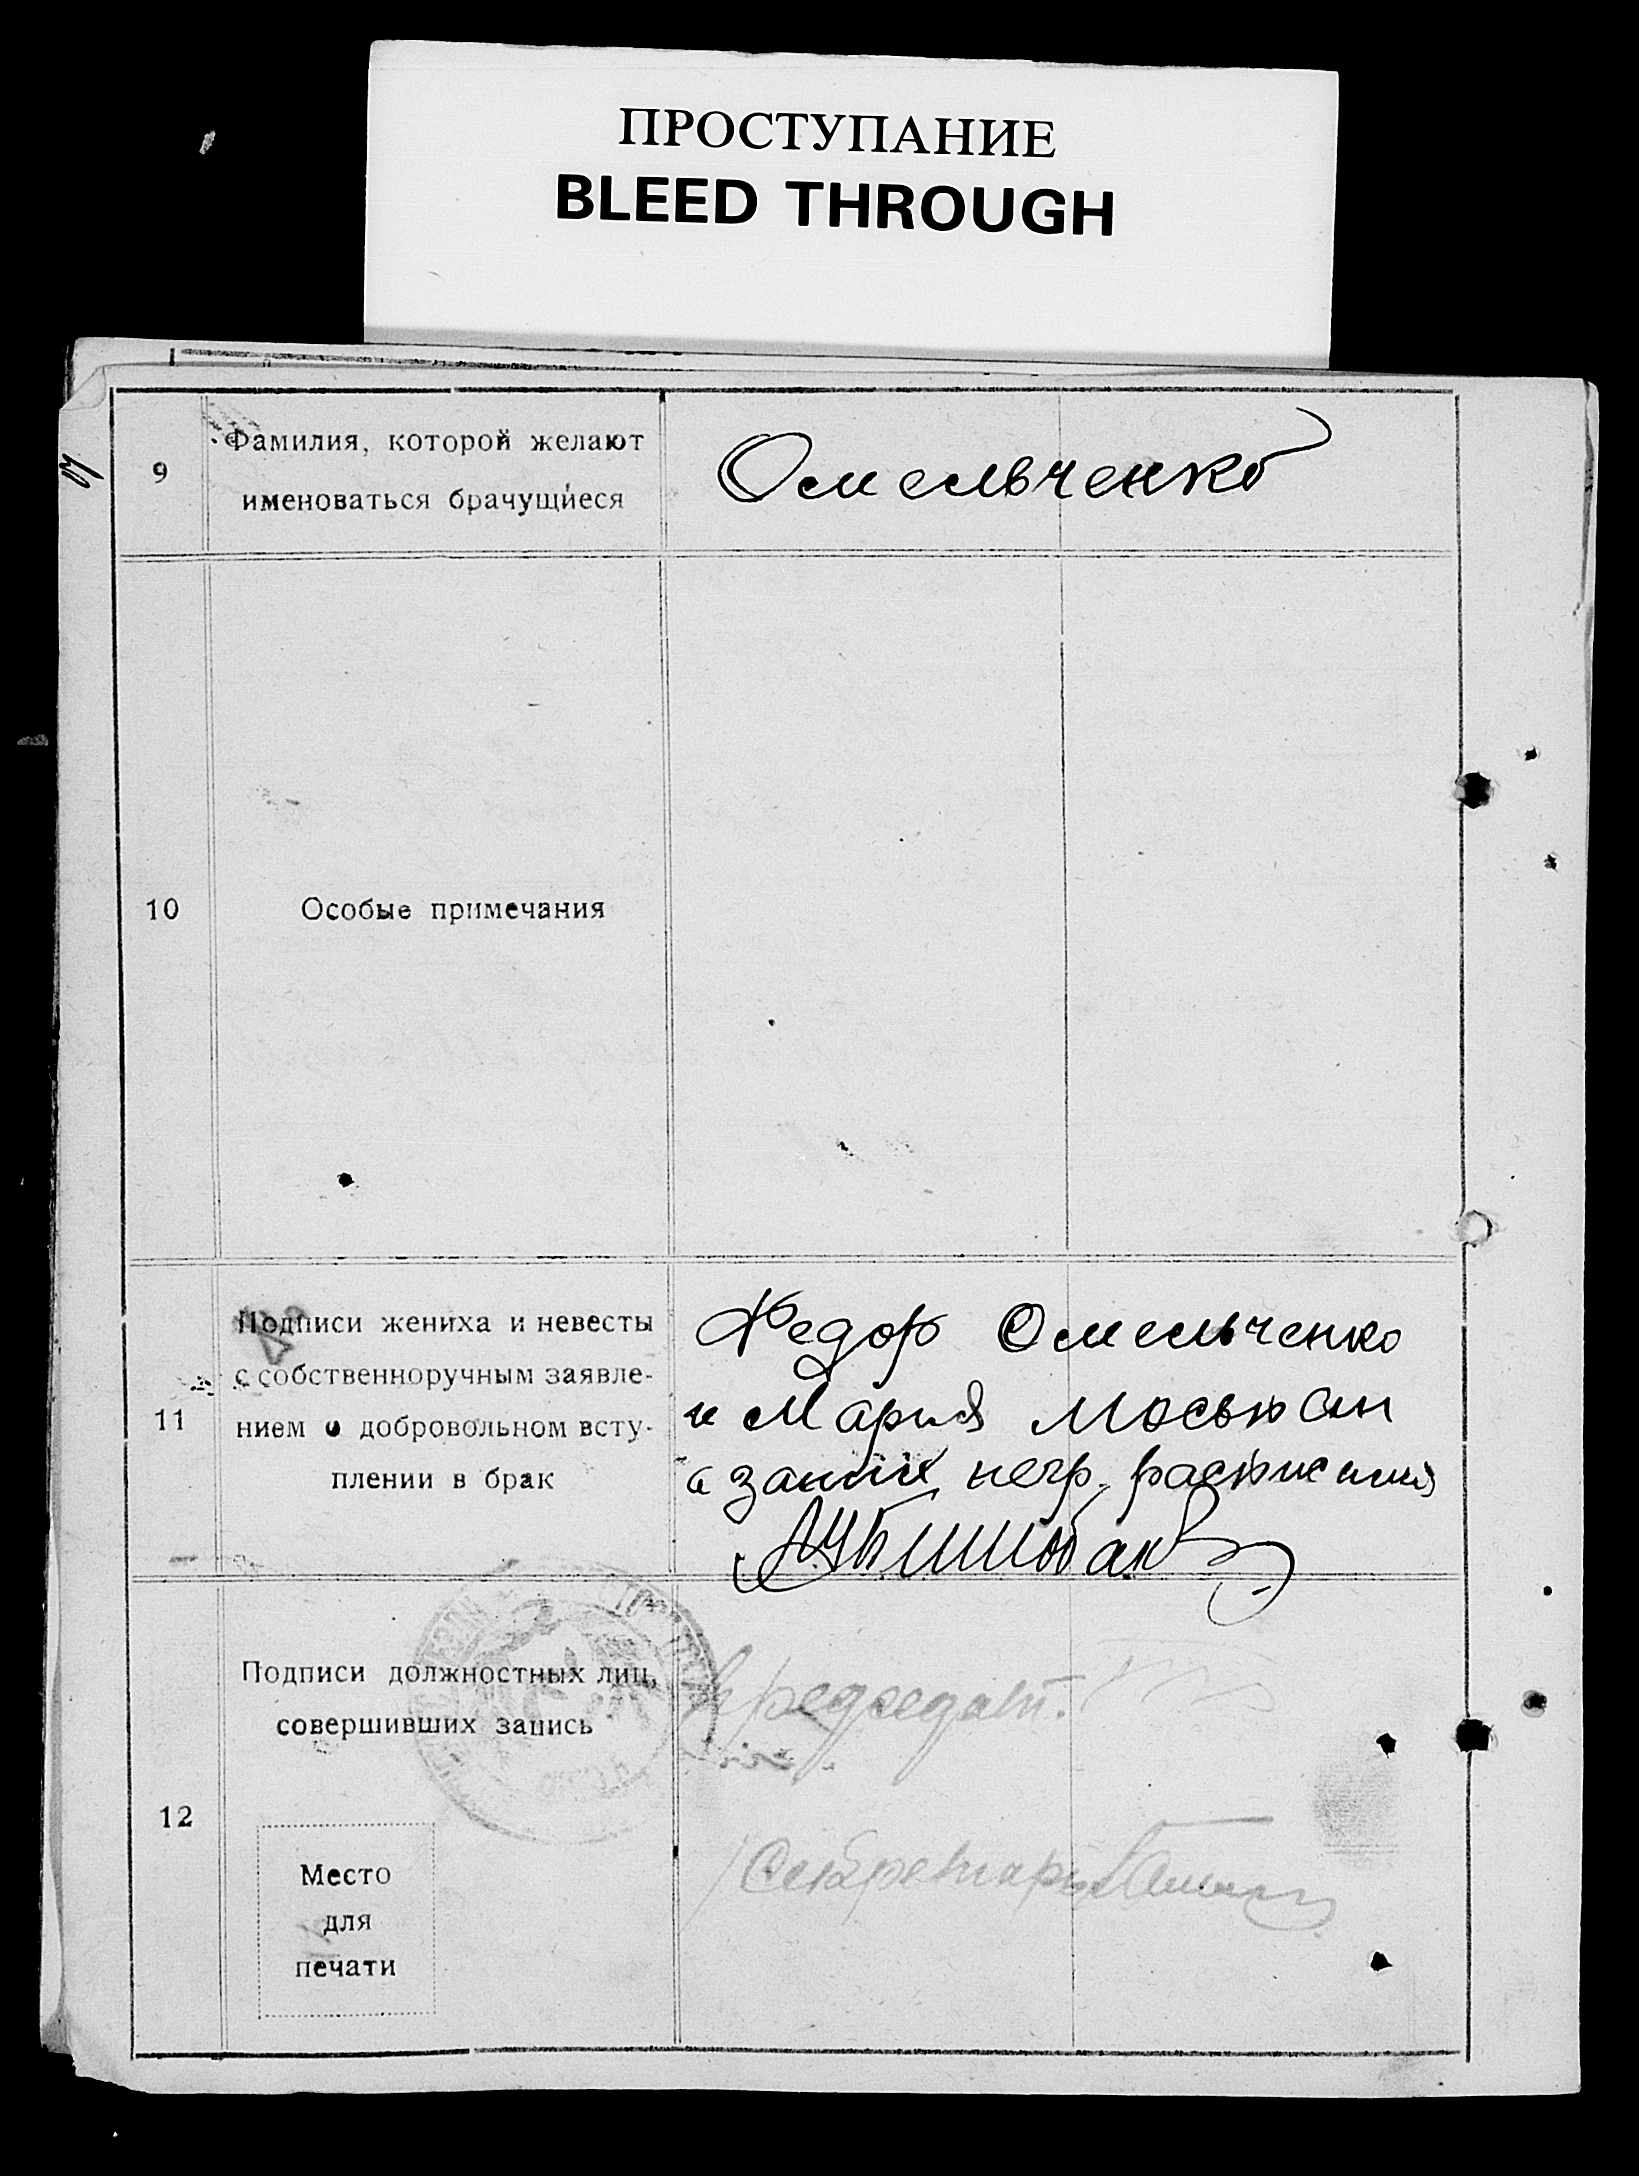 ПРОСТУПАНИЕ
BLEED THROUGH
9
Фамилия, которой желают
именоваться брачущиеся
Омельченко
10
Особые примечания
11
Подписи жениха и невесты
с собственноручным заявле-
нием о добровольном всту-
плении в брак
Федор Омельченко
и Мария
негр.
12
Подписи должностных лиц,
совершивших запись
Председат.
Секретарь
Место
для
печати